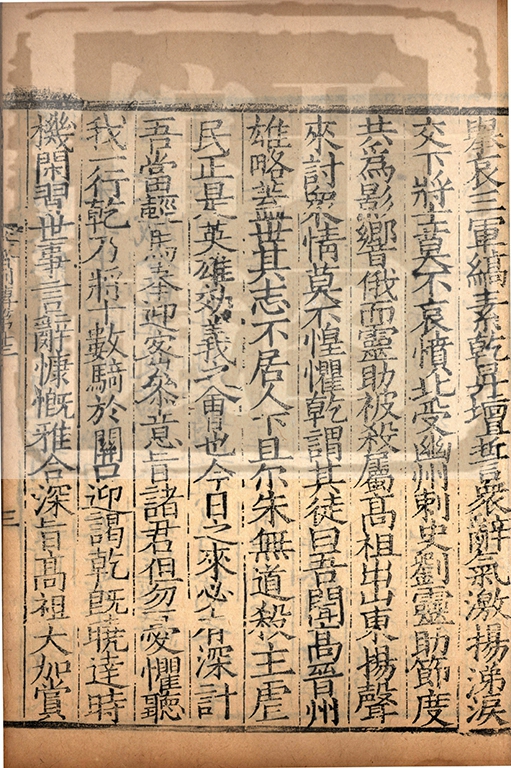 舉哀三軍縞素乾昇壇誓衆辭氣激揚涕淚
交下將士莫不哀憤北受幽州刺史劉靈助節度
共爲影響俄而靈助被殺屬高祖出山東揚聲
來討衆情莫不惶懼乾謂其徒曰吾聞高晉州
雄略蓋世其志不居人下且尔朱無道殺主虐
民正是英雄效義之會也今日之來必有深計
吾當輕馬奉迎密參意旨諸君但勿憂懼聽
我一行乾乃將十數騎於關口迎謁乾旣曉達時
機閑習世事言辭慷慨雅合深旨高祖大加賞
三